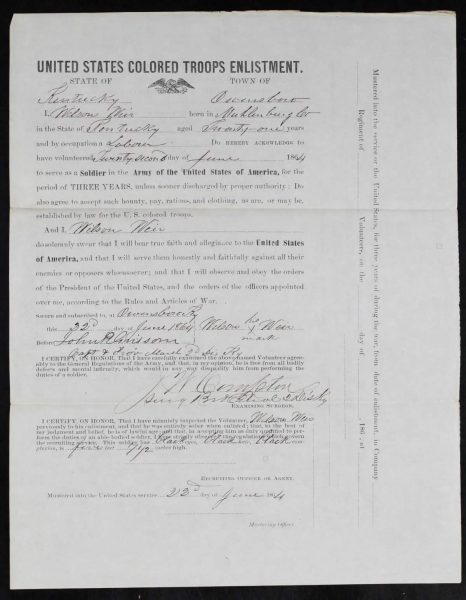 UNITED STATES COLORED TROOPS ENLISTMENT.
STATE OF TOWN OF
Kentucky Owensboro
I, Wilson Weir born in Muhlenburg Co
in the State of Kentucky aged Twenty one years
and by occupation a Laborer Do HEREBY ACKNOWLEDGE to
have volunteered Twenty second day of June 1864
to serve as a Soldier in the Army of the United States of America, for
the period of THREE YEARS, unless sooner discharged by proper authority: Do
also agree to accept such bounty, pay, rations, and clothing, as are, or may be,
established by law for the U. S. colored troops.
And I, Wilson Weir
do solemnly swear that I will bear true faith and allegiance to the United States
of America, and that I will serve them honestly and faithfully against all their
enemies or opposers whomsoever; and that I will observe and obey the orders
of the President of the United States, and the orders of the officers appointed
over me, according to the Rules and Articles of War.
Sworn and subscribed to, at Owensboro Ky
this 22d day of June 1864 Wilson his X Weir
mark
Before John R Grissom
Capt & Prov Marsh 2d Dis Ky
I CERTIFY, ON HONOR, That I have carefully examined the above named Volunteer agreeably
to the General Regulations of the Army, and that, in my opinion, he is free from all bodily
defects and mental infirmity, which would in any way disqualify him from performing the
duties of a soldier.
Compton
EXAMINING SURGEON.
I CERTIFY, ON HONOR, That I have minutely inspected the Volunteer, Wilson Weir
previously to his enlistment, and that he was entirely sober when enlisted; that, to the best of
my judgment and belief, he is of lawful age; and that, in accepting him as duly qualified to
perform the duties of an able-bodied soldier, I have strictly observed the regulations which govern
the recruiting service. This soldier has Black eyes, Black hair, Black complexion,
is five feet inches high.
RECRUITING OFFICER OR AGENT.
Mustered into the United States service 22d day of June 1864
Mustering Officer.
Mustered into the service of the United States, for three years or during the war, from date of enlistment, in Company
Regiment of Volunteers, on the day of 186 , at